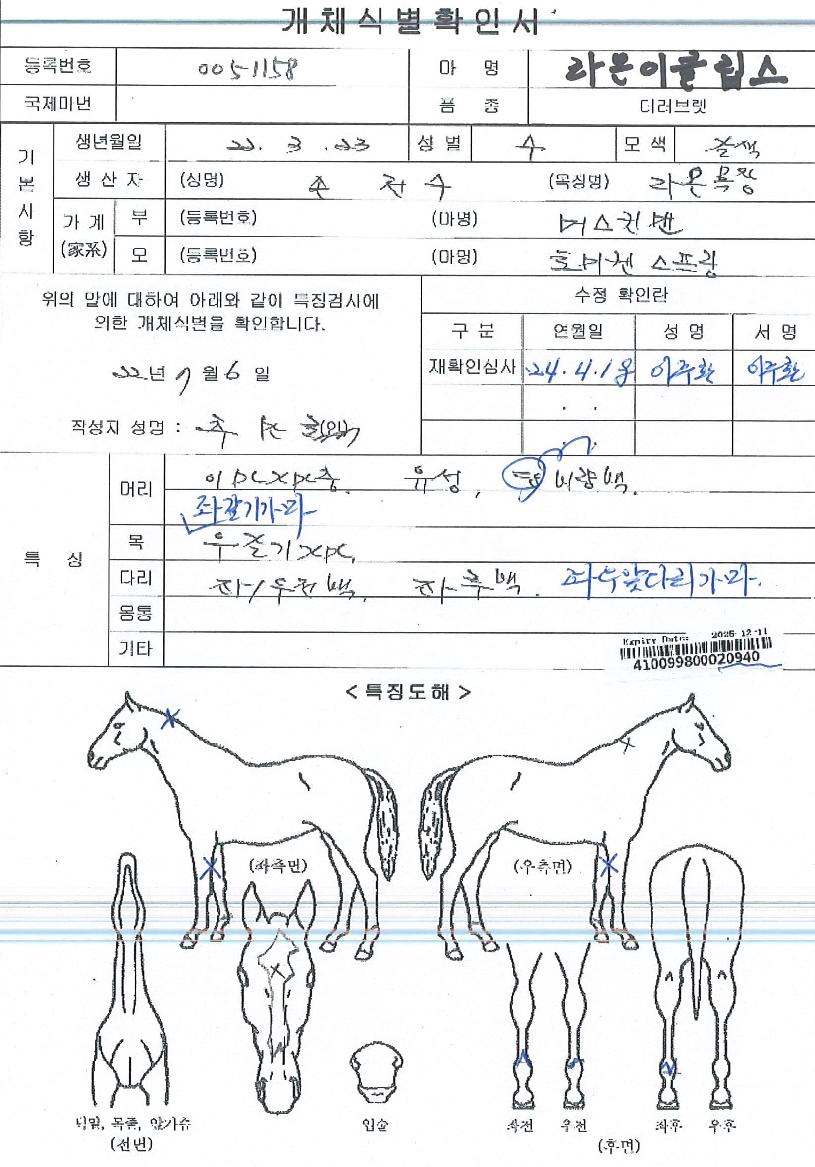 개체식별확인서
등록번호 0051158 마 명 라온이클립스
국제마번 품 종 더러브렛
기본사항
생년월일 22. 3. 23 성 별 수 모 색 갈색
생 산 자 (성명) 손 전 수 (목장명) 라온목장
가 계 (家系) 부 (등록번호) (마명) 머스킷맨
모 (등록번호) (마명) 호미젠 스프링
위의 말에 대하여 아래와 같이 특징검사에
의한 개체식별을 확인합니다.
22년 7 월 6 일
작성자 성명 : (인)
수정 확인란
구 분 연월일 성 명 서 명
재확인심사 24. 4. 이주환 이주환
. .
특 징
머리 유성, 비량백.
좌갈기가마
목
다리 좌후백. 좌우앞다리가마.
몸통
기타
Expiry Date: 2025-12-11
410099800020940
< 특징도해 >
(좌측면) (우측면)
턱밑, 목줄, 앞가슴
(전면)
입술
좌전 우전 좌후 우후
(후면)